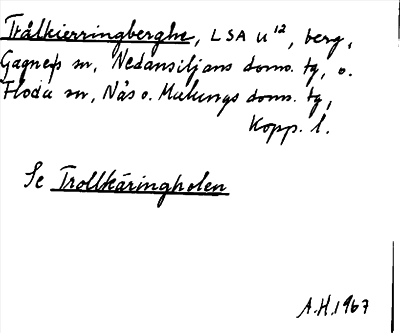 Trålkierringberghe, LSA U 12, berg,
Gagnefs sn, Nedansiljans doms. tg, o.
Floda sn, Nås o. Malungs doms. tg,
Kopp. l.
Se Trollkäringholen
A.H. 1967